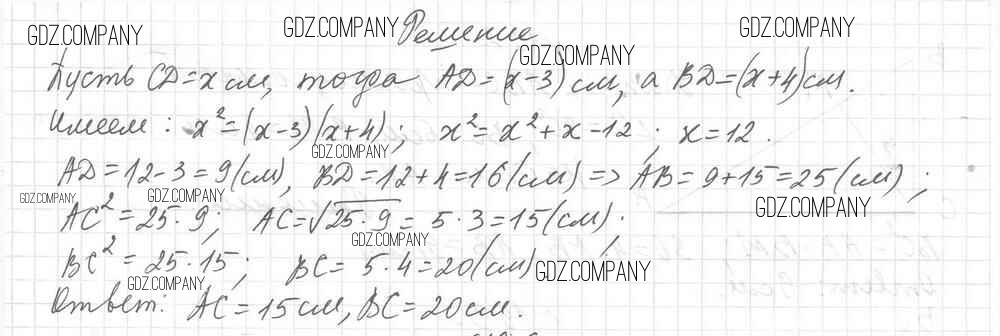 GDZ.COMPANY GDZ.COMPANY Решение GDZ.COMPANY
GDZ.COMPANY
Пусть CD=x см, тогда AD=(x-3) см, а BD=(x+4) см.
Имеем: x²=(x-3)(x+4); x²=x²+x-12; x=12.
GDZ.COMPANY
AD=12-3=9(см), BD=12+4=16(см) => AB=9+15=25(см);
GDZ.COMPANY GDZ.COMPANY GDZ.COMPANY
AC²=25·9; AC=√25·9=5·3=15(см);
GDZ.COMPANY
BC²=25·15; BC=5·4=20(см) GDZ.COMPANY
GDZ.COMPANY
Ответ: AC=15см, BC=20см.